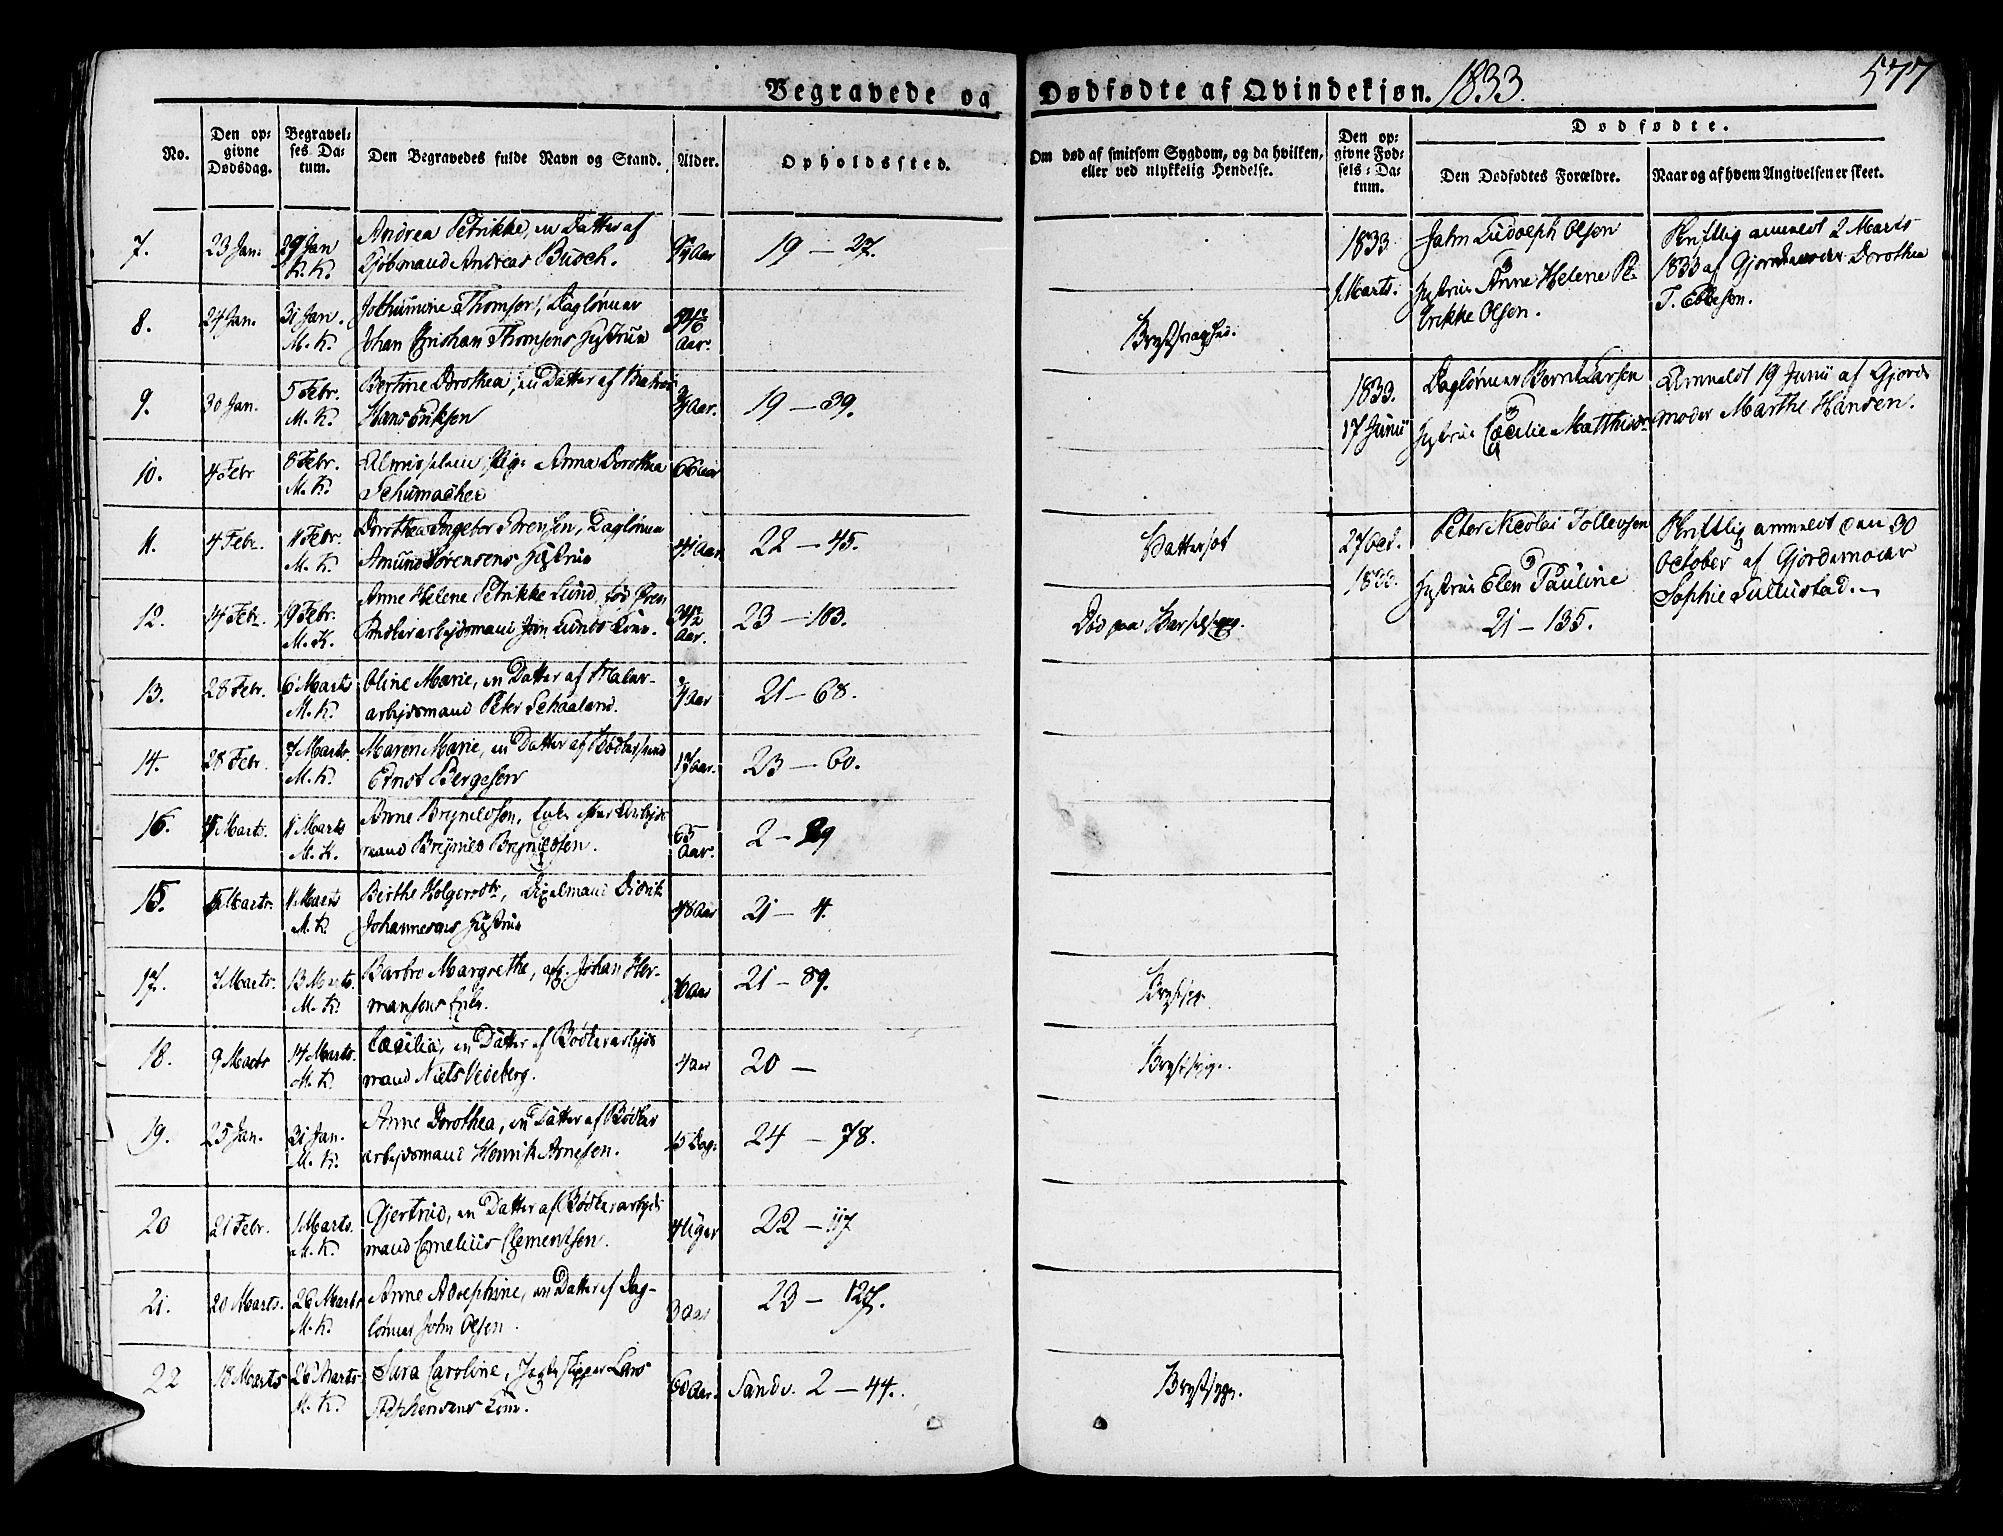 Begravede og Dødfødte af Qvindekjøn. 1833. 577
No.
Den op-
givne
Dødsdag.
Begravel-
ses Da-
tum.
Den Begravedes fulde Navn og Stand.
Alder.
Opholdssted.
Om død af smitsom Sygdom, og da hvilken,
eller ved ulykkelig Hendelse.
Den op-
givne Fød-
sels-Da-
tum.
Dødfødte.
Den Dødfødtes Forældre.
Naar og af hvem Angivelsen er skeet.
7. 23 Jan. 29 Jan Andrea Petrikke, en Datter af
K. K. Mand Andreas Busch. Aar 19 – 27.
8. 24 Jan. 31 Jan. Thomsen, Daglønner
M. K. Johan Christian Thomsens Hystrue Aar.
9. 30 Jan. 5 Febr. Bertine Dorothea, en Datter af
M. K. Hans Eriksen Aar. 19 – 39.
10. 4 Febr 8 Febr. Pige Anna Dorothea 66 Aar
M. K. Schumacher
11. 4 Febr. 11 Febr. Dorothea Ingebor Sørensen, Daglønner
M. K. Amund Sørensens Hystrue 41 Aar 22 – 45.
12. 14 Febr. 19 Febr. Anne Helene Petrikke Lund, fød
M. K. arbejdsmand Lunds Kone. Aar. 23 – 103.
13. 28 Febr. 6 Marts Oline Marie, en Datter af
M. K. arbejdsmand Peter Schaaland. Aar 21 – 68.
14. 28 Febr. 7 Marts. Maren Marie, en Datter af
M. K. Ernst Bergesen 17 Aar. 23 – 60.
16. 4 Marts. 11 Marts Anne Brynildsen, Enke efter Arbejds
M. K. mand Brynild Brynildsen. 65 Aar. 2 – 29
15. 5 Marts. 11 Marts Berthe Holgersdtr, Didrik
M. K. Johannesens Hystrue 48 Aar 21 – 4.
17. 7 Marts. 13 Marts. Barbro Margrethe, afg. Johan Her-
M. K. mansens Enke. Aar 21 – 89.
18. 9 Marts 14 Marts. Cæcilia, en Datter af Bødkerarbejds
M. K. mand Niels Vedeberg. 4 Aar 20 –
19. 25 Jan. 31 Jan. Anne Dorothea, en Datter af Bødker
M. K. arbejdsmand Henrik Arnesen. 15 Dag. 24 – 78.
20 21 Febr. 1 Marts. Gjertrud, en Datter af Bødkerarbejds
M. K. mand Cornelius Clementsen. 4 Uger 22 – 117
21. 20 Marts. 26 Marts Anne Adolphine, en Datter af Dag-
M. K. lønner John Olsen. 3 Aar 23 – 127.
22 18 Marts 26 Marts Sara Caroline, Jagteskipper Lars
M. K. Stephensens Kone. 60 Aar. Sandv. 2 – 44.
Brystsvaghed.
Vattersot
Død paa Barselseng.
Brystsyge
Brystsyge.
Brystsyge.
1833
1 Marts.
John Ludolph Olsen
Hystrue Anne Helene Pe-
trikke Olsen.
Skriftlig anmeldt 2 Marts
1833 af Gjordemoder Dorothea
T. Ebbesen.
1833.
17 Junii
Dagløner Bernt Larsen
Hystrue Cæcilie Matthisdr
Anmeldt 19 Junii af Gjorde
moder Marthe Hansen.
27 Oct.
1833.
Peter Nicolai Tollevsen
Hystrue Elen Pauline
21 – 135.
Skriftlig anmeldt den 30
October af Gjordemoder
Sophie Tullustad.